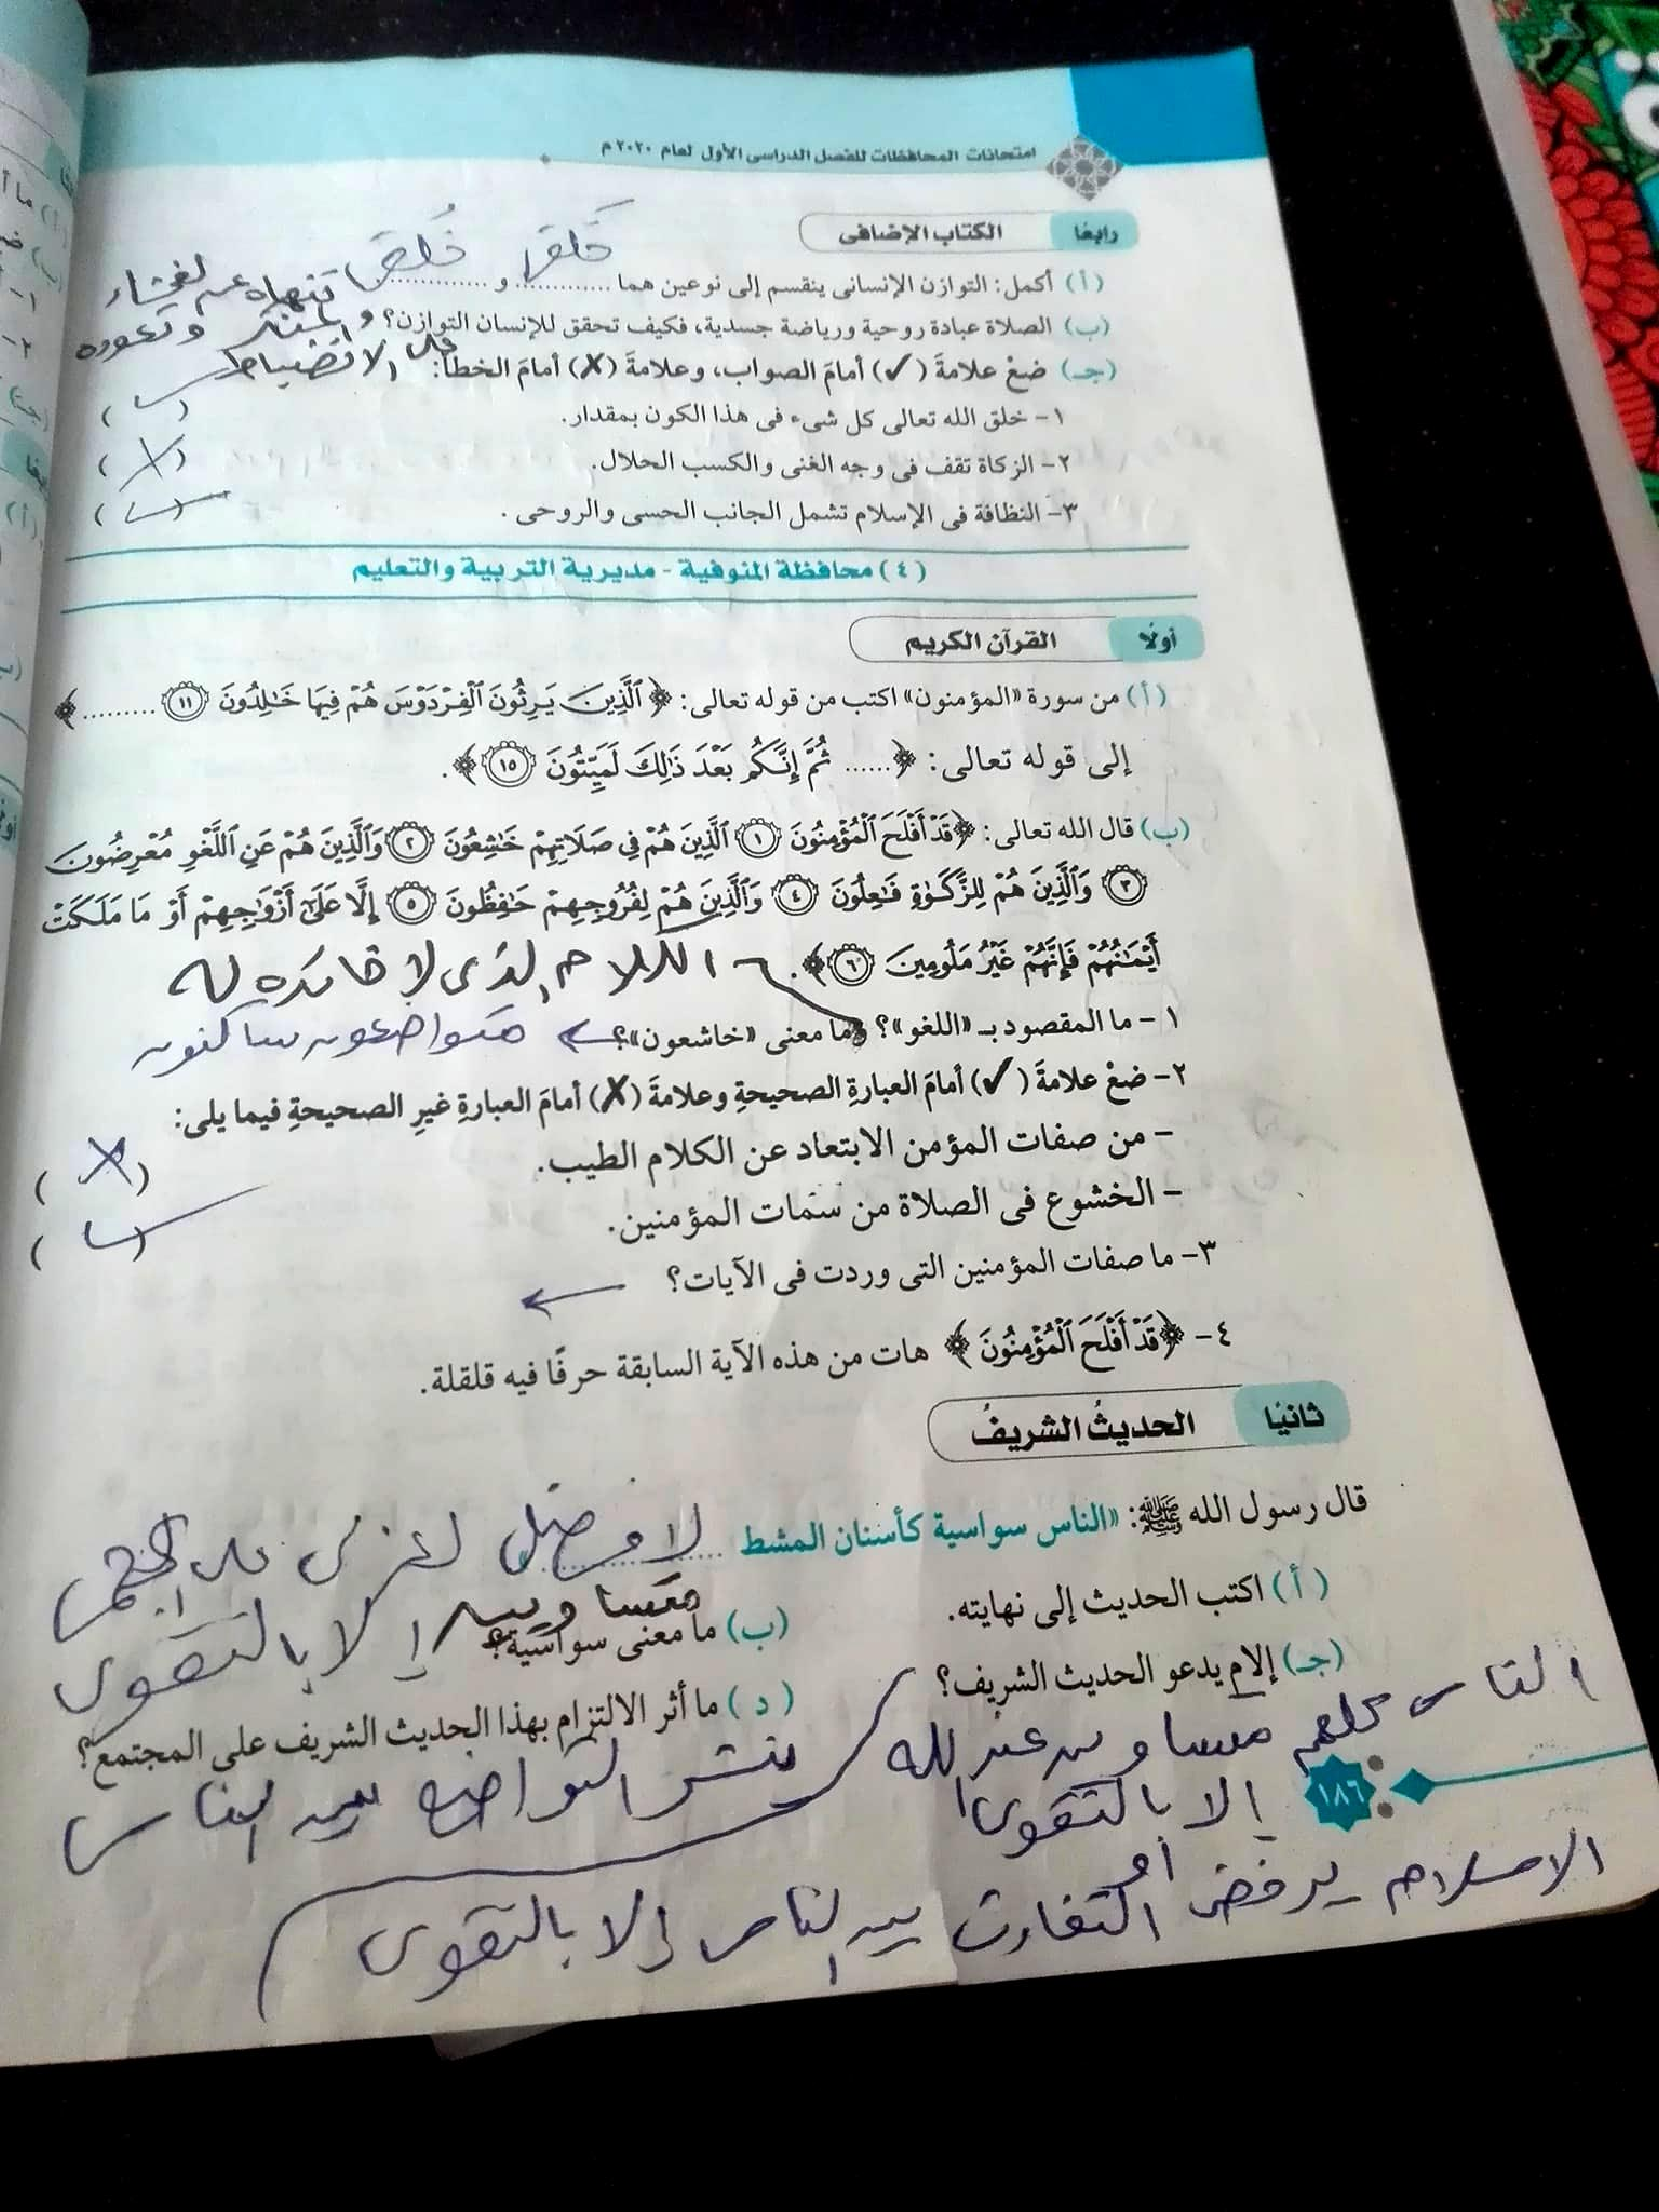 امتحانات المحافظات للفصل الدراسى الأول لعام ٢٠٢٠م
رابعًا الكتاب الإضافى
خَلق خُلق
(أ) أكمل: التوازن الإنسانى ينقسم إلى نوعين هما ............ و ............
تنهاه عن الفحشاء
(ب) الصلاة عبادة روحية ورياضة جسدية، فكيف تحقق للإنسان التوازن؟
و المنكر وتعوده
على الانضباط
(جـ) ضعْ علامةَ (✓) أمامَ الصواب، وعلامةَ (✗) أمامَ الخطأ:
١- خلق الله تعالى كل شىء فى هذا الكون بمقدار. (✓)
٢- الزكاة تقف فى وجه الغنى والكسب الحلال. (✗)
٣- النظافة فى الإسلام تشمل الجانب الحسى والروحى. (✓)
(٤) محافظة المنوفية - مديرية التربية والتعليم
أولًا القرآن الكريم
(أ) من سورة «المؤمنون» اكتب من قوله تعالى: ﴿ٱلَّذِينَ يَرِثُونَ ٱلْفِرْدَوْسَ هُمْ فِيهَا خَٰلِدُونَ ١١ .........﴾
إلى قوله تعالى: ﴿...... ثُمَّ إِنَّكُم بَعْدَ ذَٰلِكَ لَمَيِّتُونَ ١٥﴾.
(ب) قال الله تعالى: ﴿قَدْ أَفْلَحَ ٱلْمُؤْمِنُونَ ١ ٱلَّذِينَ هُمْ فِى صَلَاتِهِمْ خَٰشِعُونَ ٢ وَٱلَّذِينَ هُمْ عَنِ ٱللَّغْوِ مُعْرِضُونَ
٣ وَٱلَّذِينَ هُمْ لِلزَّكَوٰةِ فَٰعِلُونَ ٤ وَٱلَّذِينَ هُمْ لِفُرُوجِهِمْ حَٰفِظُونَ ٥ إِلَّا عَلَىٰٓ أَزْوَٰجِهِمْ أَوْ مَا مَلَكَتْ
أَيْمَٰنُهُمْ فَإِنَّهُمْ غَيْرُ مَلُومِينَ ٦﴾.
الكلام الذى لا فائده له
١- ما المقصود بـ «اللغو»؟ وما معنى «خاشعون»؟ ← متواضعون ساكنون
٢- ضعْ علامةَ (✓) أمامَ العبارةِ الصحيحةِ وعلامةَ (✗) أمامَ العبارةِ غيرِ الصحيحةِ فيما يلى:
- من صفات المؤمن الابتعاد عن الكلام الطيب. (✗)
- الخشوع فى الصلاة من سمات المؤمنين. (✓)
٣- ما صفات المؤمنين التى وردت فى الآيات؟ ←
٤- ﴿قَدْ أَفْلَحَ ٱلْمُؤْمِنُونَ﴾ هات من هذه الآية السابقة حرفًا فيه قلقلة.
ثانيًا الحديثُ الشريفُ
قال رسول الله ﷺ: «الناس سواسية كأسنان المشط ............»
لا فضل لعربى على اعجمى
إلا بالتقوى
(أ) اكتب الحديث إلى نهايته.
(ب) ما معنى سواسية؟
متساويين
(جـ) إلام يدعو الحديث الشريف؟
(د) ما أثر الالتزام بهذا الحديث الشريف على المجتمع؟
الناس كلهم متساوين عند الله
الا بالتقوى
ينشر التواضع بين الناس
١٨٦
أو
الاسلام يرفض التفاوت بين الناس إلا بالتقوى